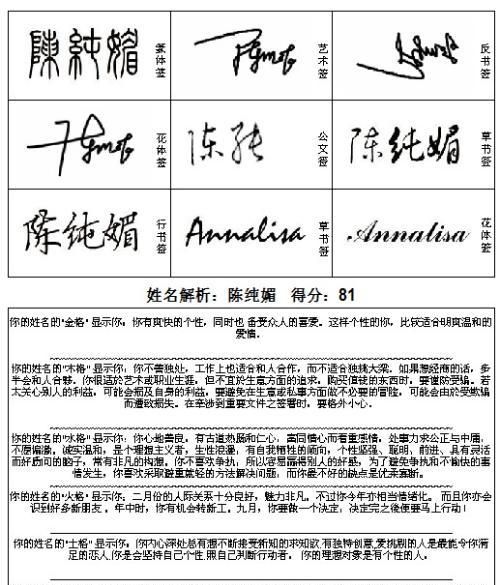 陳純媚
篆体签
艺术签
反书签
花体签
陈纯
公文签
陈纯媚
草书签
陈纯媚
行书签
Annalisa
草书签
Annalisa
花体签
姓名解析：陈纯媚 得分：81
你的姓名的"金格"显示你：你有爽快的个性，同时也 备受众人的喜爱。这样个性的你，比较适合明爽温和的
爱情。
你的姓名的"木格"显示你：你不善独处，工作上也适合和人合作，而不适合独挑大梁。如果想经商的话，多
半会和人合夥。你很适於艺术或职业生涯，但不宜於生意方面的追求。购买值钱的东西时，要谨防受骗。若
太关心别人的利益，可能会损及自身的利益，要避免在生意或私事方面做不必要的冒险，可能会由於受欺骗
而遭致损失。在牵涉到重要文件之签署时，要格外小心。
你的姓名的"水格"显示你：你心地善良。有古道热肠和仁心，富同情心而看重感情，处事力求公正与中庸，
不愿偏激。诚实温和，是个理想主义者，生性浪漫，有自我牺牲的倾向，个性坚强、聪明、前进、具有灵活
而好质问的脑子，常有非凡的构想。你不喜欢争执，所以容易赢得别人的好感，为了避免争执和不愉快的事
情发生，你喜欢采取避重就轻的方法解决问题，而你最不好的缺点是优柔寡断。
你的姓名的"火格"显示你：二月份的人际关系十分良好，魅力非凡。不过你今年亦相当情绪化。 而且你亦会
识到好多新朋友 。年中时，你有机会转新工。九月，你要做一个决定，决定完之後便要马上行动！
你的姓名的"土格"显示你：你内心深处总有想不断接受新知的求知欲，有独特创意，爱挑剔的人是最能令你满
足的恋人,你是会坚持自己个性,照自己判断行动者。 你的理想对象是有个性的人。